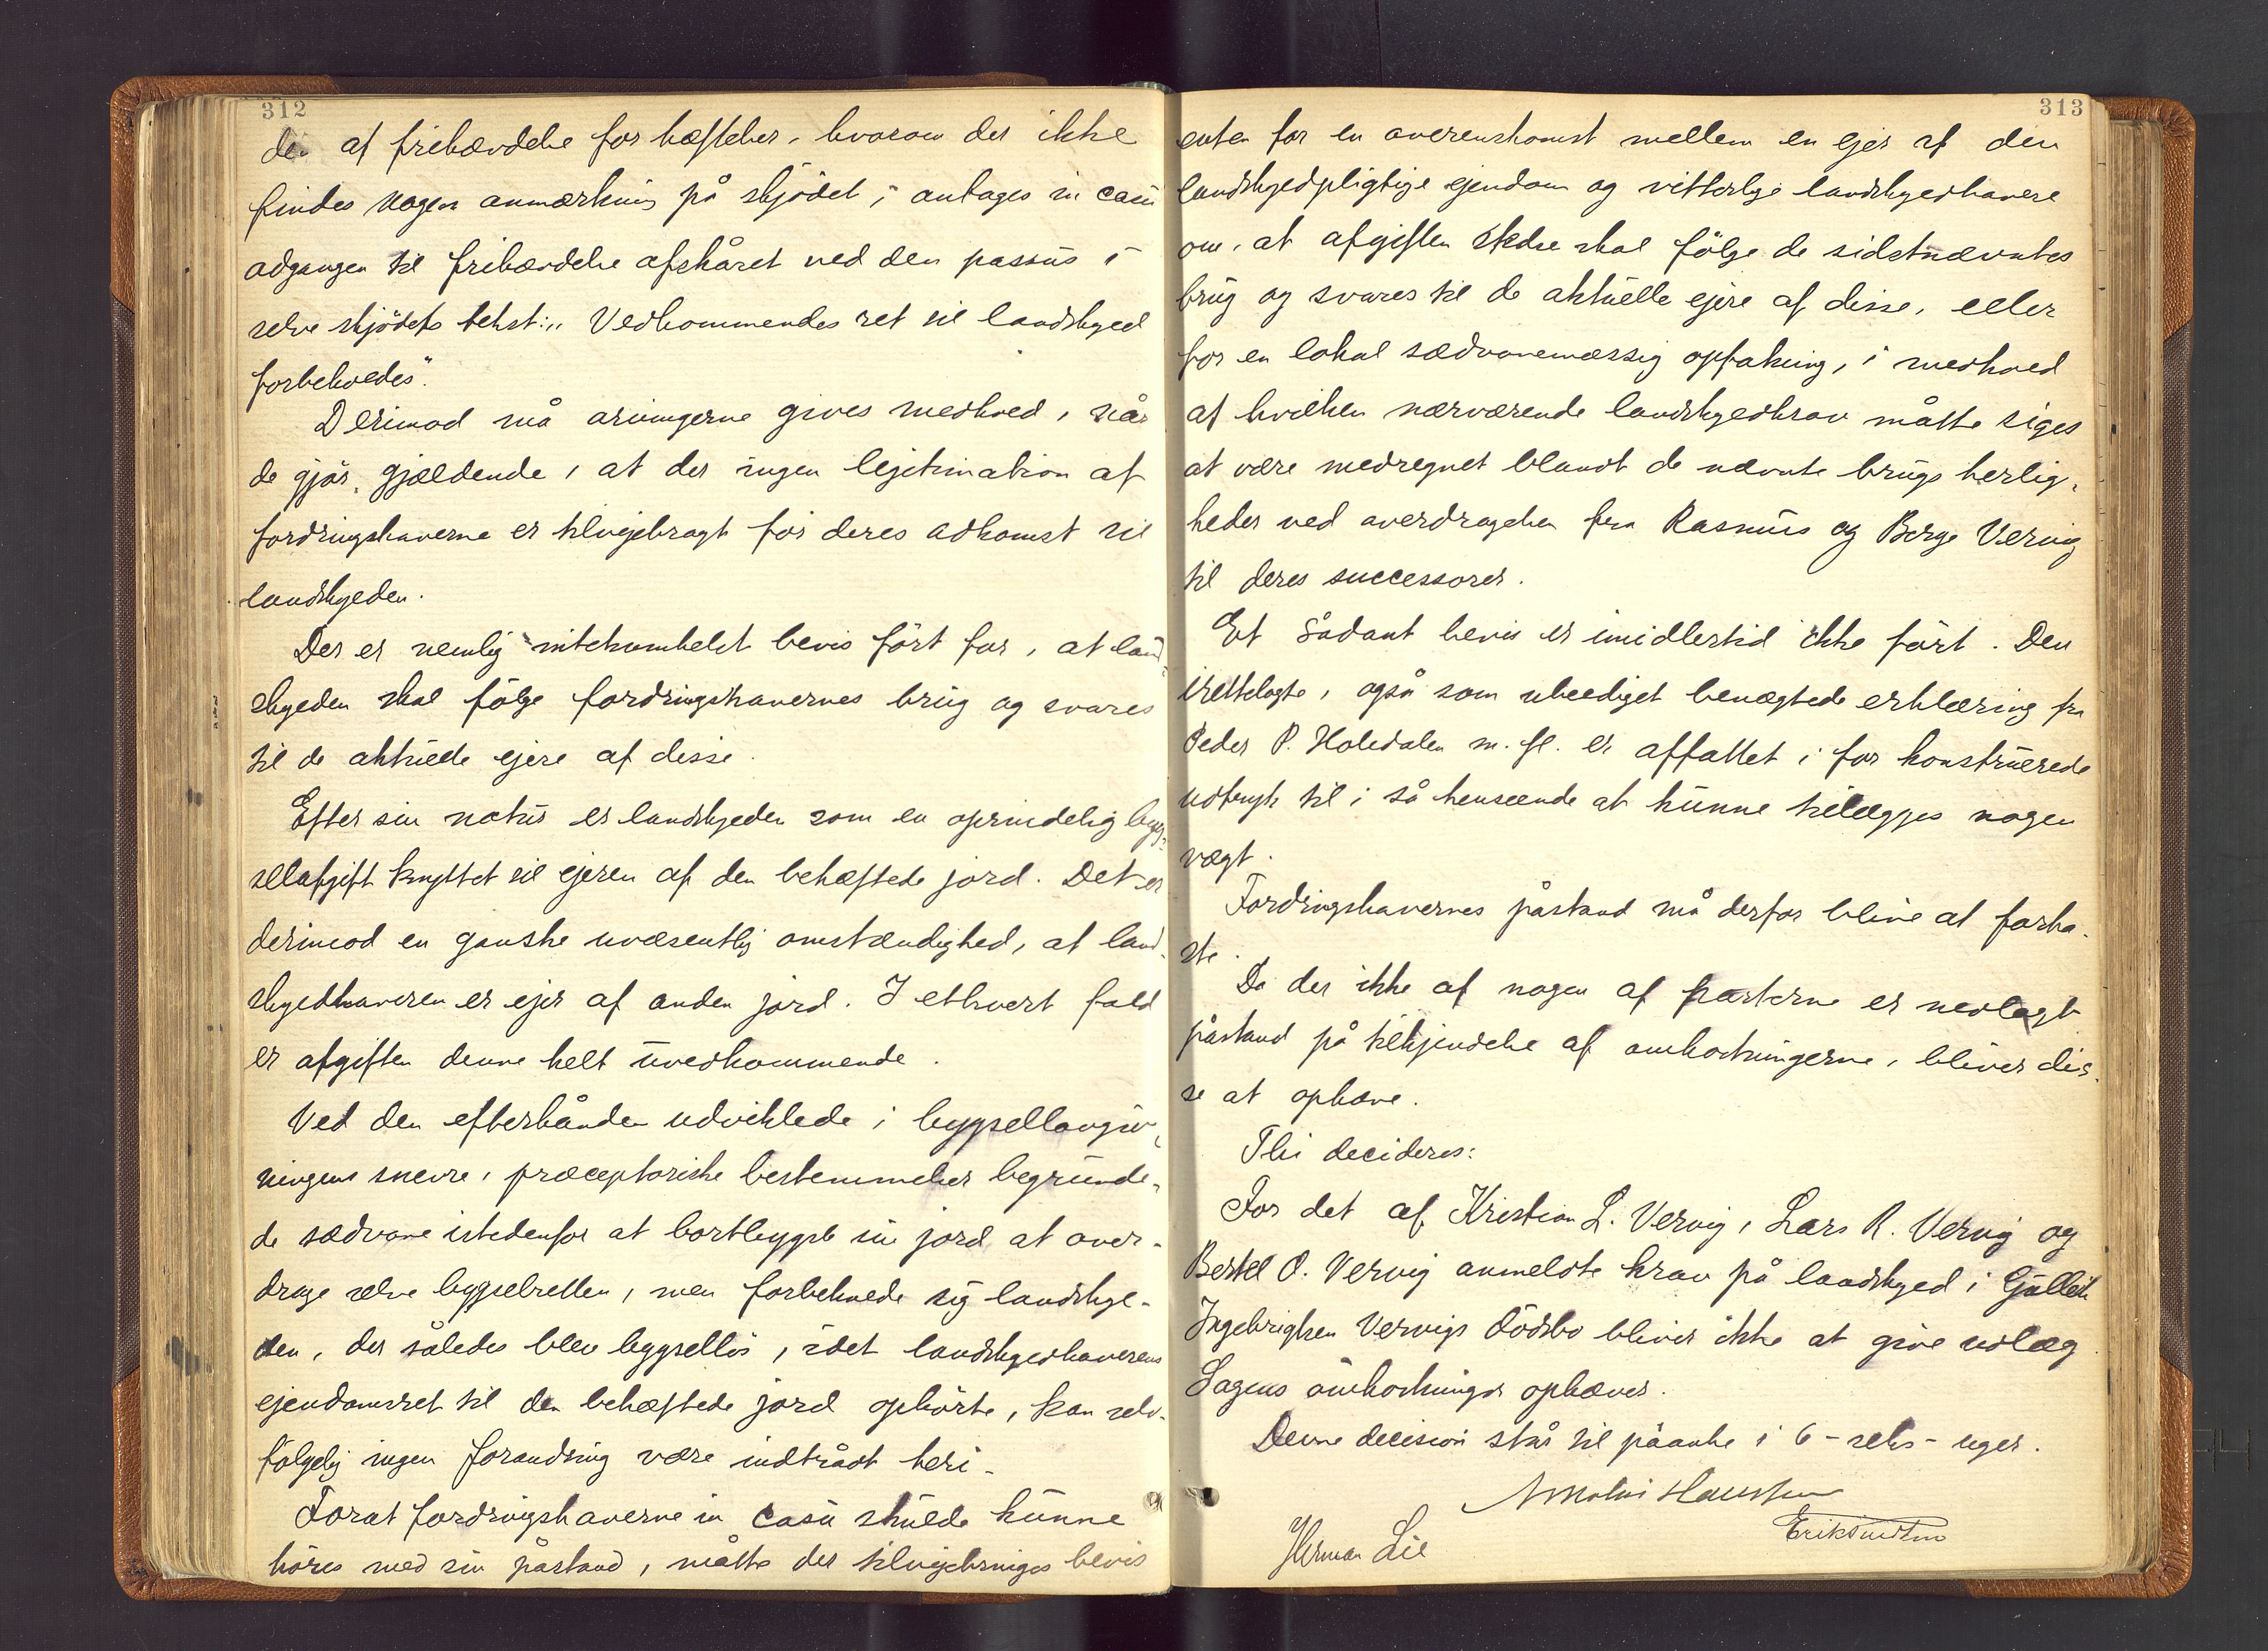 312
den af frihævdelse for hæftelser, hvorom der ikke
findes nogen anmærkning på skjödet, antages in casu
adgangen til frihævdelse afskåret ved den passus i
selve skjödets tekst: „Vedkommendes ret til landskyld
forbeholdes".
Derimod må arvingerne gives medhold, når
de gjör gjældende, at der ingen legitimation af
fordringshaverne er tilvejebragt for deres adkomst til
landskylden.
Der er nemlig intetsomhelst bevis fört for, at land-
skylden skal fölge fordringshavernes brug og svares
til de aktuelle ejere af disse.
Efter sin natur er landskylden som en oprindelig byg-
selafgift knyttet til ejeren af den behæftede jord. Det er
derimod en ganske uvæsentlig omstændighed, at land-
skyldhaveren er ejer af anden jord. I ethvert fald
er afgiften denne helt uvedkommende.
Ved den efterhånden udviklede i bygsellovgiv-
ningens snevre, præceptoriske bestemmelser begrunde-
de sædvane istedenfor at bortbygsle sin jord at over-
drage selve bygselretten, men forbeholde sig landskyl-
den, der således blev bygsellös, idet landskyldhaverens
ejendomsret til den behæftede jord ophörte, kan selv-
fölgelig ingen forandring være indtrådt heri.
Forat fordringshaverne in casu skulde kunne
höres med sin påstand, måtte der tilvejebringes bevis
313
enten for en overenskomst mellem en ejer af den
landskyldpligtige ejendom og vitterlige landskyldhavere
om, at afgiften skal fölge de sidstnævntes
brug og svares til de aktuelle ejere af disse, eller
for en lokal sædvanemæssig opfatning, i medhold
af hvilken nærværende landskyldkrav måtte siges
at være medregnet blandt de nævnte brugs herlig-
heder ved overdragelsen fra Rasmus og Børge Vervig
til deres successorer.
Et sådant bevis er imidlertid ikke fört. Den
irettelagte, også som ubeediget benægtede erklæring fra
Peder P. Holedalen m. fl. er affattet i for konstruerede
udtryk til i så henseende at kunne tillægges nogen
vægt.
Fordringshavernes påstand må derfor blive at forka-
ste.
Da der ikke af nogen af parterne er nedlagt
påstand på tilkjendelse af omkostningerne, bliver dis-
se at ophæve.
Thi decideres:
For det af Kristian L. Vervig, Lars R. Vervig og
Bertel O. Vervig anmeldte krav på landskyld i Gullik
Ingebrigtsen Vervigs dödsbo bliver ikke at give udlæg.
Sagens omkostninger ophæves.
Denne decision står til påanke i 6 - seks - uger.
Herman Lie